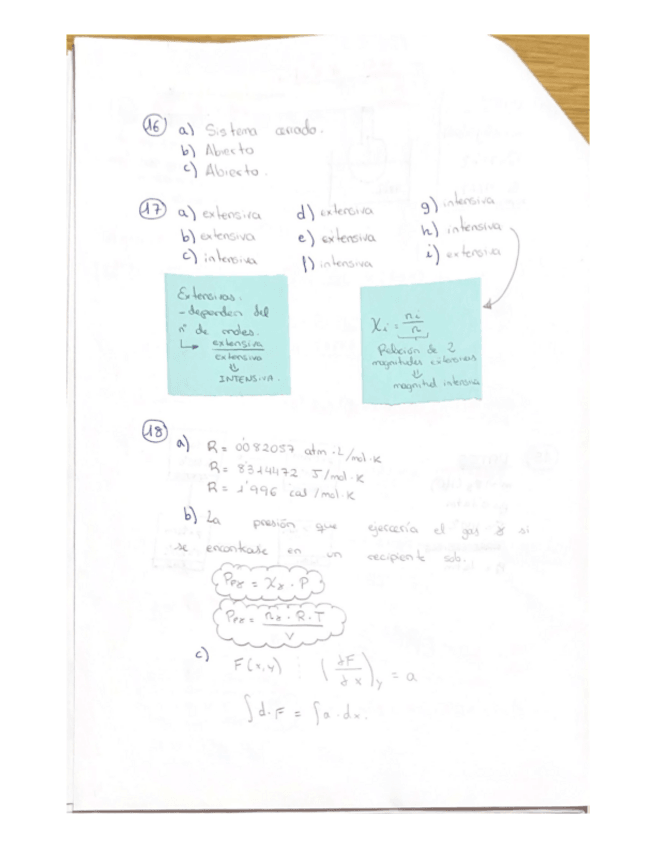 16 a) Sistema cerrado.
b) Abierto
c) Abierto.
17 a) extensiva
b) extensiva
c) intensiva
d) extensiva
e) extensiva
f) intensiva
g) intensiva
h) intensiva
i) extensiva
Extensivas.
- dependen del
nº de moles.
↳ extensiva / extensiva
⇓
INTENSIVA.
Xi = ni / n
Relación de 2
magnitudes extensivas
⇓
magnitud intensiva
18 a) R = 0'082057 atm·L/mol·K
R = 8'314472 J/mol·K
R = 1'996 cal/mol·K
b) La presión que ejercería el gas γ si
se encontrase en un recipiente solo.
Ppγ = Xγ · P
Ppγ = nγ · R · T / V
c) F(x,y) : (∂F/∂x)y = a
∫d·F = ∫a·dx.